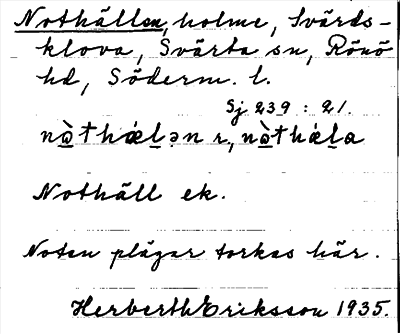 Nothällen, holme, Svärds-
klova, Svärta sn, Rönö
hd, Söderm. l.
Sj 239 : 21.
nὼthǽlən r., nὼthǽla
Nothäll ek.
Noten plägar torkas här.
Herberth Eriksson 1935.